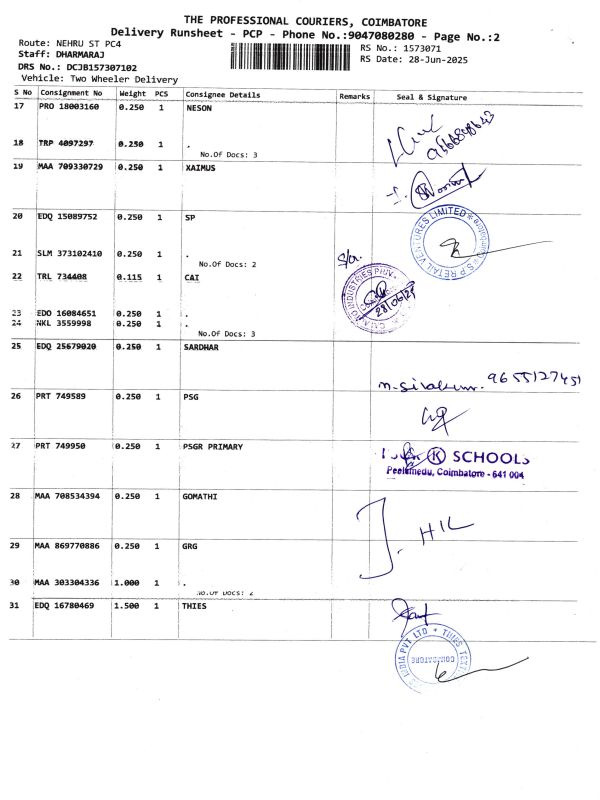 THE PROFESSIONAL COURIERS, COIMBATORE
Delivery Runsheet - PCP - Phone No.:9047080280 - Page No.:2
Route: NEHRU ST PC4
RS No.: 1573071
Staff: DHARMARAJ
RS Date: 28-Jun-2025
DRS No.: DCJB157307102
Vehicle: Two Wheeler Delivery
S No Consignment No Weight PCS Consignee Details Remarks Seal & Signature
17 PRO 18003160 0.250 1 NESON
18 TRP 4097297 0.250 1 .
No.Of Docs: 3
19 MAA 709330729 0.250 1 XAIMUS
20 EDQ 15089752 0.250 1 SP
RETAIL VENTURES LIMITED
21 SLM 373102410 0.250 1 .
No.Of Docs: 2
22 TRL 734408 0.115 1 CAI
INDUSTRIES
28/06/25
23 EDO 16084651 0.250 1 .
24 NKL 3559998 0.250 1 .
No.Of Docs: 3
25 EDQ 25679020 0.250 1 SARDHAR
9655127451
26 PRT 749589 0.250 1 PSG
27 PRT 749950 0.250 1 PSGR PRIMARY
K SCHOOLS
Peelamedu, Coimbatore - 641 004
28 MAA 708534394 0.250 1 GOMATHI
29 MAA 869770886 0.250 1 GRG
30 MAA 303304336 1.000 1 .
No.Of Docs: 2
31 EDQ 16780469 1.500 1 THIES
INDIA PVT LTD
COIMBATORE